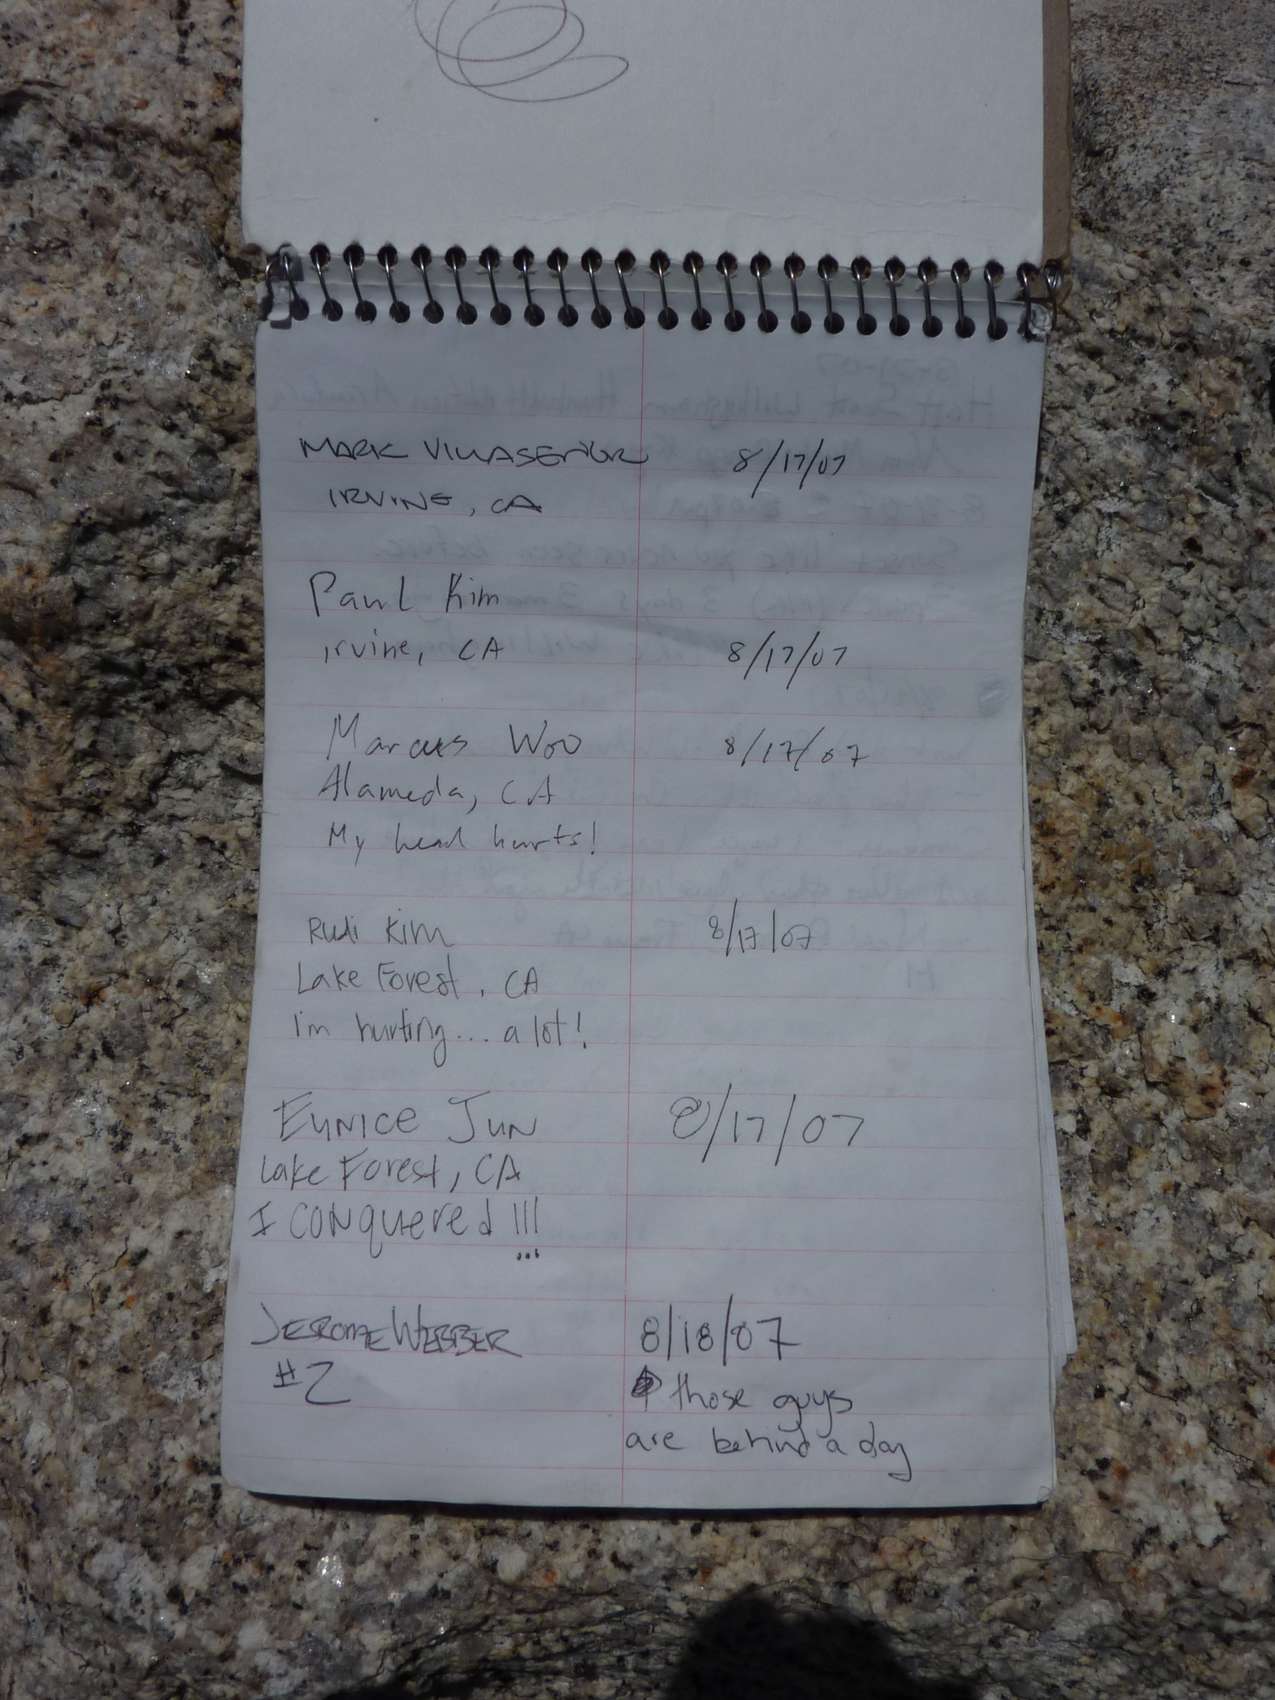 MARK VILLASENOR 8/17/07
IRVINE, CA
Paul Kim
irvine, CA 8/17/07
Marcus Woo 8/17/07
Alameda, CA
My head hurts!
Rudi Kim 8/17/07
Lake Forest, CA
I'm hurting... a lot!
Eunice Jun 8/17/07
Lake Forest, CA
I conquered!!!
JEROME WEBBER 8/18/07
#2 those guys
are behind a day